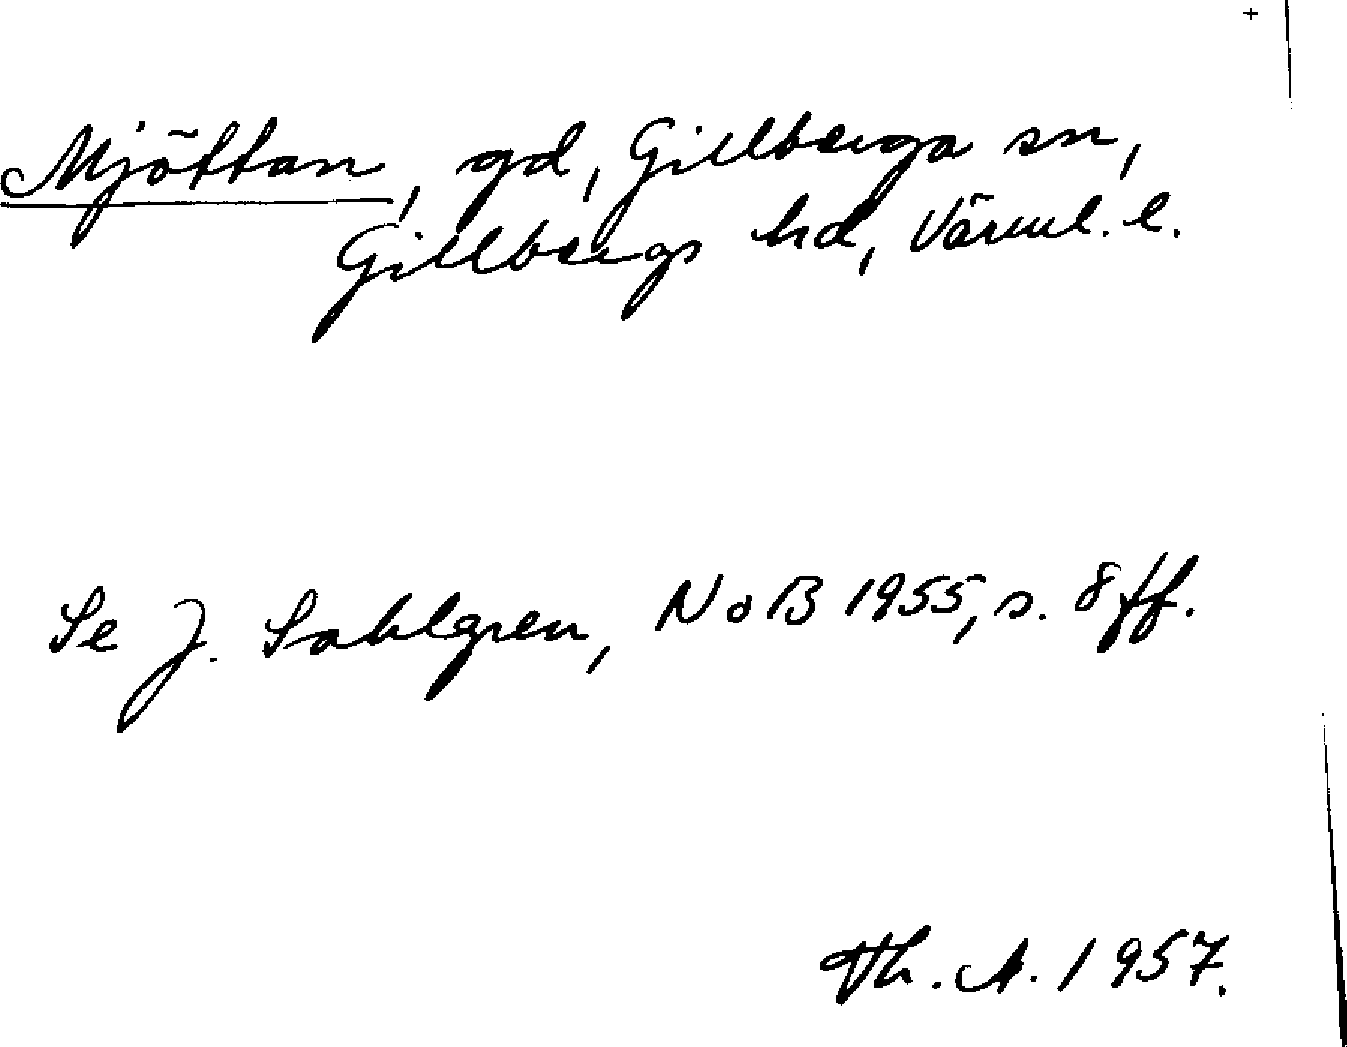 +
Mjöttan, gd, Gillberga sn,
Gillbergs hd, Värml. l.
Se J. Sahlgren, NoB 1955, s. 8 ff.
Th. A. 1957.